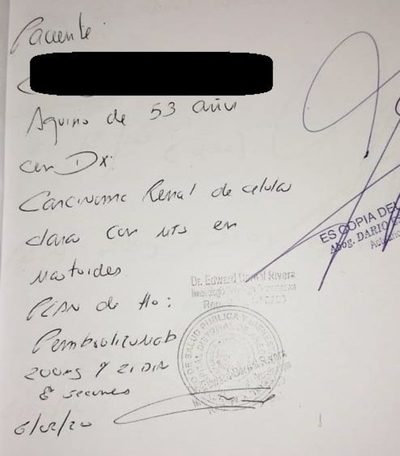 Paciente:
Aquino de 53 años
con Dx:
Carcinoma Renal de celulas
claras con mts en
Mastoides
PLAN de tto:
Pembrolizumab
200mg c/ 21 DIA
8 sesiones
6/02/20
ES COPIA DEL
Abog. DARIO
Dr. Edward Rivera
DE SALUD PUBLICA Y